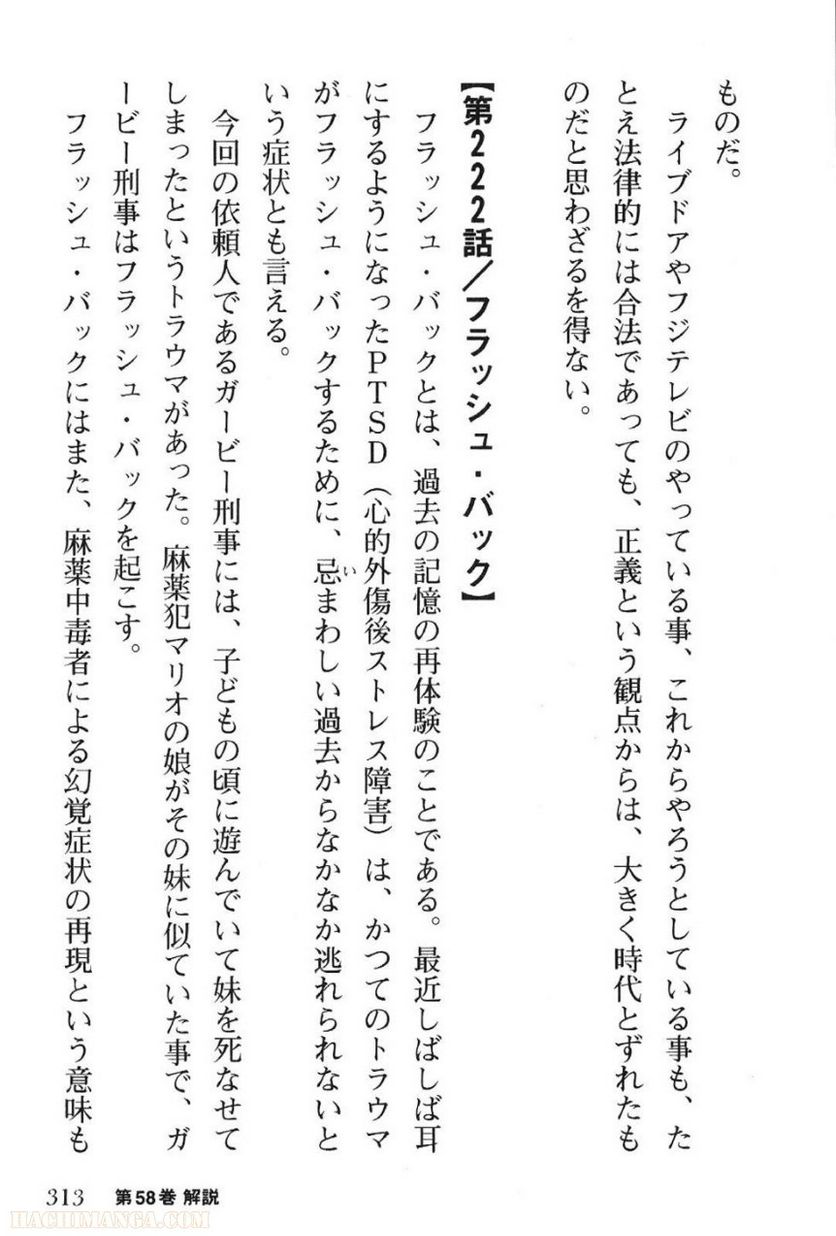 ものだ。
　ライブドアやフジテレビのやっている事、これからやろうとしている事も、た
とえ法律的には合法であっても、正義という観点からは、大きく時代とずれたも
のだと思わざるを得ない。
【第222話／フラッシュ・バック】
　フラッシュ・バックとは、過去の記憶の再体験のことである。最近しばしば耳
にするようになったPTSD（心的外傷後ストレス障害）は、かつてのトラウマ
がフラッシュ・バックするために、忌まわしい過去からなかなか逃れられないと
いう症状とも言える。
　今回の依頼人であるガービー刑事には、子どもの頃に遊んでいて妹を死なせて
しまったというトラウマがあった。麻薬犯マリオの娘がその妹に似ていた事で、ガ
ービー刑事はフラッシュ・バックを起こす。
　フラッシュ・バックにはまた、麻薬中毒者による幻覚症状の再現という意味も
313 第58巻 解説
HACHIMANGA.COM